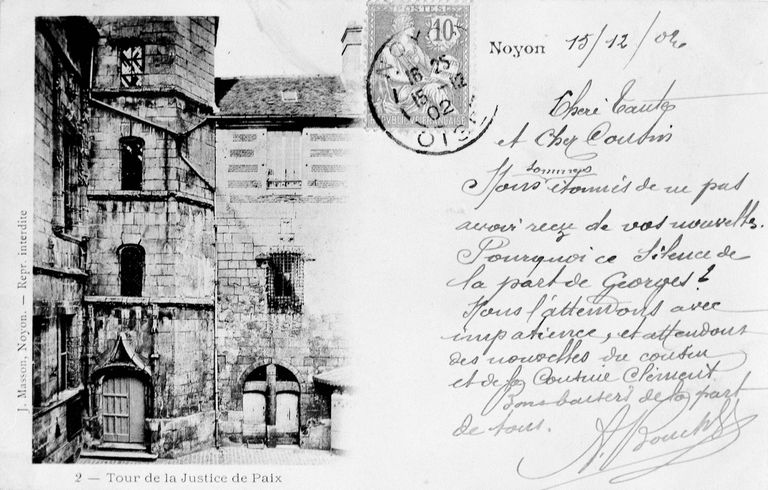 POSTES
10
RÉPUBLIQUE FRANÇAISE
NOYON
16 25
15 - 12
02
OISE
Noyon 15/12/02
Chère Tante
et Cher Cousin
sommes
Nous étonnés de ne pas
avoir reçu de vos nouvelles.
Pourquoi ce silence de
la part de Georges?
Nous l'attendons avec
impatience, et attendons
des nouvelles du cousin
et de la Cousine Clément
Bons baisers de la part
de tous.
J. Masson, Noyon. — Repr. interdite
2 — Tour de la Justice de Paix